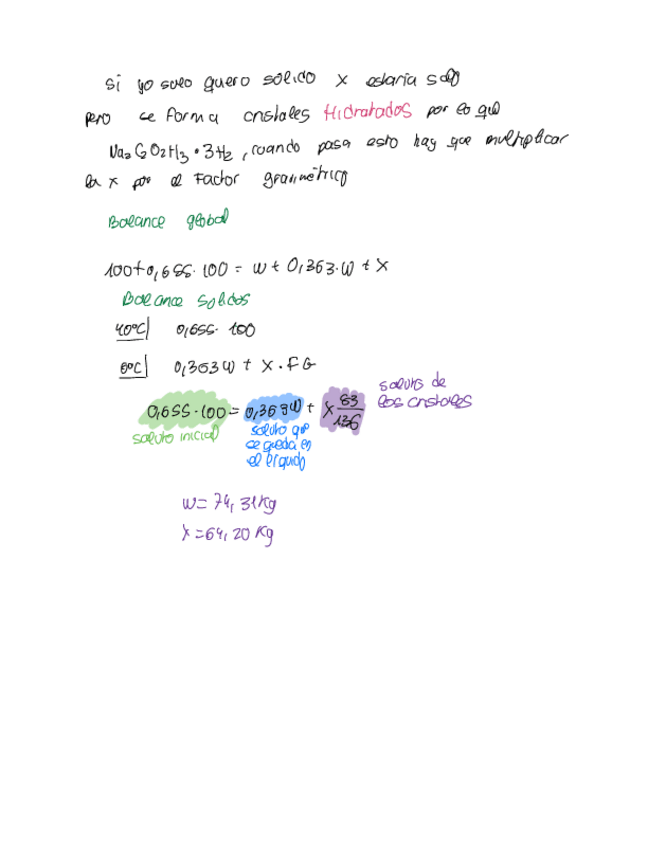 Si yo solo quero solido x estaria solo
pero se forma cristales Hidratados por lo que
Na₂C₂O₂H₃·3H₂, cuando pasa esto hay que multiplicar
la x por el Factor gravimétrico
Balance global
100+0,655·100 = w + 0,363·w + x
Balance solidos
40ºC| 0,655·100
0ºC| 0,363w + x·FG
0,655·100 = 0,363w + x 83/136
soluto de
los cristales
soluto inicial
soluto que
se queda en
el líquido
w = 74,31Kg
x = 64,20 Kg